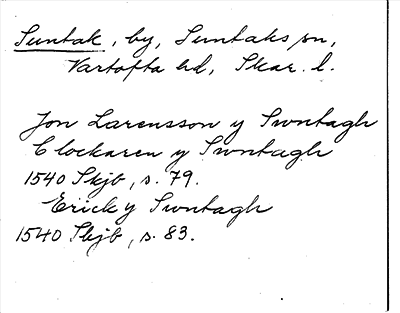 Suntak, by, Suntaks sn,
Vartofta hd, Skar. l.
Jon Larensson y Swntagh
Clockaren y Swntagh
1540 Skjb, s. 79.
Erick y Swntagh
1540 Skjb, s. 83.